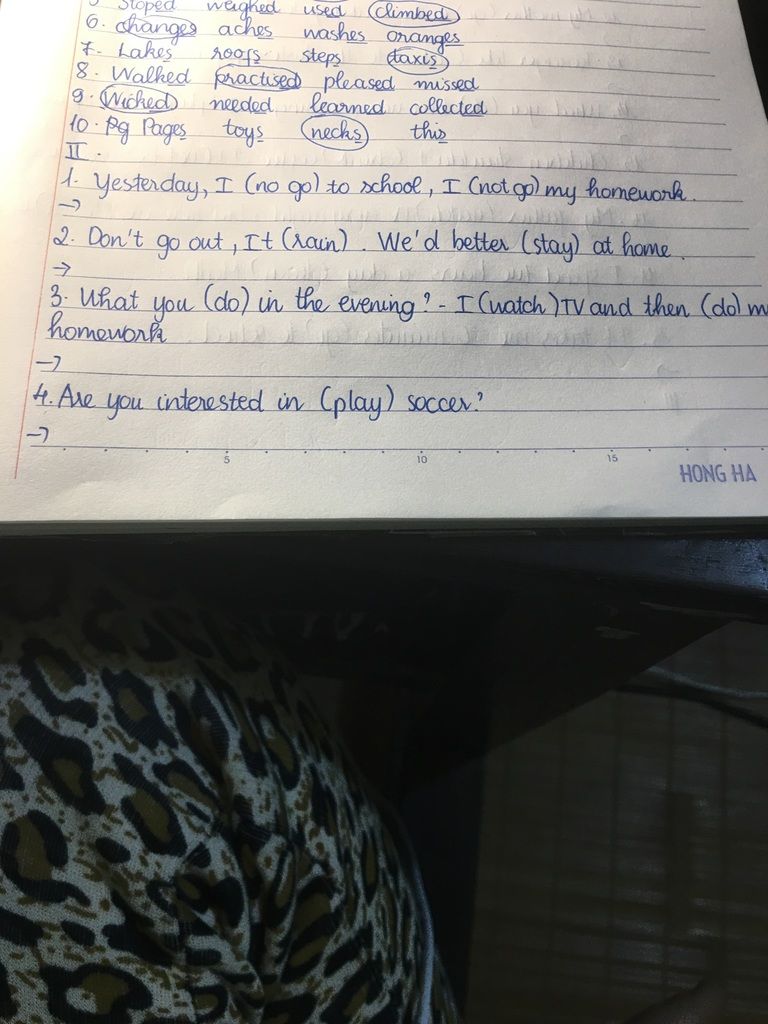 5 Stoped weighed used climbed
6. changes aches washes oranges
7. Lakes roofs steps taxis
8. Walked practised pleased missed
9. Wicked needed learned collected
10. Pg Pages toys necks this
II.
1. Yesterday, I (no go) to school, I (not go) my homework.
→
2. Don't go out, It (rain). We'd better (stay) at home.
→
3. What you (do) in the evening? - I (watch) TV and then (do) m
homework
→
4. Are you interested in (play) soccer?
→
5 10 15
HONG HA